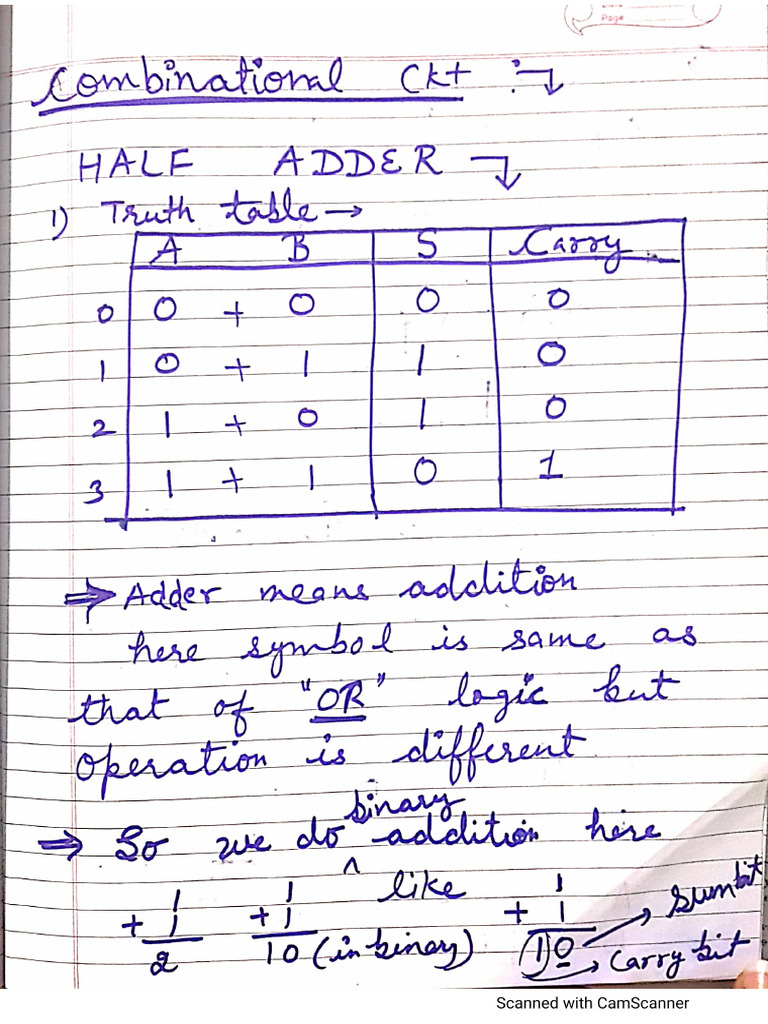 Page
Combinational Ckt :↴
HALF ADDER ↴
1) Truth table →
A B S Carry
0 0 + 0 0 0
1 0 + 1 1 0
2 1 + 0 1 0
3 1 + 1 0 1
⇒ Adder means addition
here symbol is same as
that of "OR" logic but
operation is different
binary
⇒ So we do ^ addition here
like
1 1 1
+ 1 + 1 + 1 → sum bit
2 10 (in binary) 10 → carry bit
Scanned with CamScanner